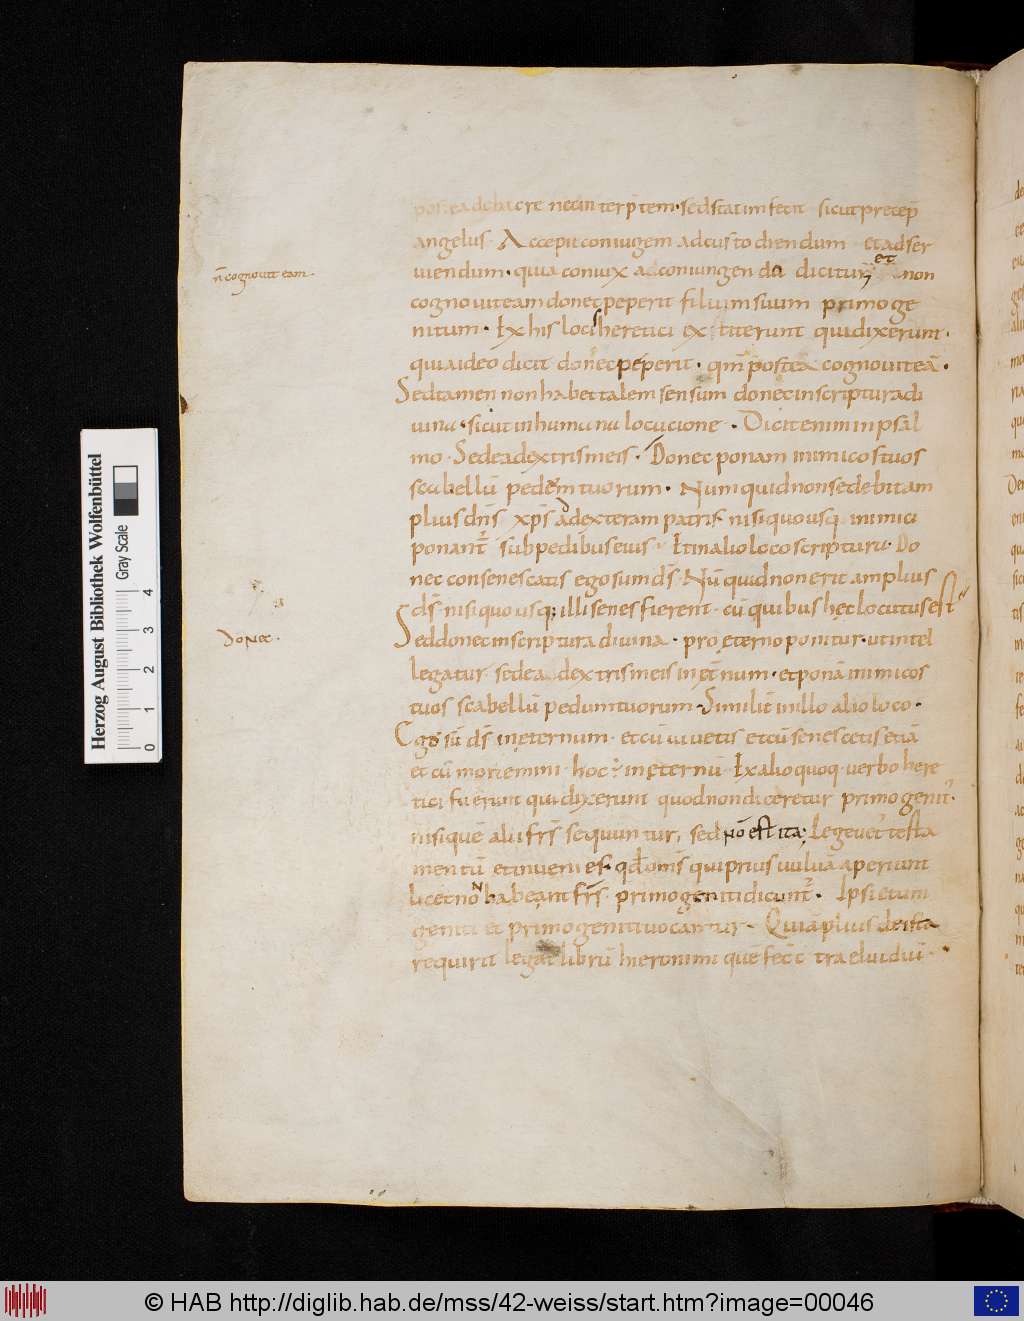 postea debacre nec interp̄tem · sed statim fecit sicut precep̄
angelus · Accepit coniugem ad custodiendum et ad ser
n̄ cognovit eam ·
uiendum · quia coniux ad coniungendu dicitur; et non
cognouit eam donec peperit filium suum primoge
nitum · Ex his locis heretici exstiterunt qui dixerunt ·
quia ideo dicit donec peperit · qm̄ postea cognouit eā ·
Sed tamen non habet talem sensum donec in scriptura di
uina · sicut in humana locucione · Dicit enim in psal
mo · Sede ad dextris meis · Donec ponam inimicos tuos
scabellū pedem tuorum · Numquid non sedebit am
plius dn̄s xp̄s ad dexteram patris nisi quousq; inimici
ponant᷑ sub pedibus eius · Et in alio loco scriptura · Do
nec consenescatis ego sum d̄s · Nū quid non erit amplius
d̄s nisi quo usq; illi senes fierent · cū quibus hęc locutus est
Donec ·
Sed donec in scriptura diuina · pro ęterno ponitur · ut intel
legatur · sede a dextris meis in ęt̄num · et ponā inimicos
tuos scabellū pedum tuorum · Similit̄ in illo alio loco ·
Ego sū d̄s in ęternum · et cū iuuetis et cū senescetis etiā
et cū moriemini · hoc ÷ in ęternū · Ex alio quoq; verbo here
tici fuerunt qui dixerunt quod non diceretur primogenit᾽ ·
nisi quē alii fr̄s sequuntur, sed nō est ita; Lege uet᾽ testa
mentū et inueni es · qd̄ om̄s qui prius uuluā aperiunt
licet non habeant fr̄s · primogeniti dicunt᷑ · Ipsi et uni
geniti et primogeniti uocantur · Qui āplius de ista
requirit legat librū hieronimi quē fec̄ c̄tra eluidiū ·
Herzog August Bibliothek Wolfenbüttel
Gray Scale
0 1 2 3 4
© HAB http://diglib.hab.de/mss/42-weiss/start.htm?image=00046